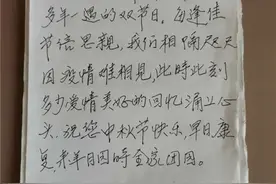 多年一遇的双节日。每逢佳
节倍思親，我们相隔咫尺天
因疫情难相見，此時此刻
多少爱情美好的回忆涌上心
头，祝您中秋节快乐，早日康
复，来年日同時全家团圆。